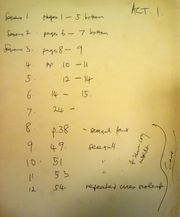 ACT. 1.
Scene 1. pages 1 – 5 bottom
Scene 2. pages 6 – 7 bottom
Scene 3. pages 8 – 9
4. pp 10 – 11
5. 12 – 14
6. 14 – 15.
7. 24 –
8. p.38 –
9. 49. seagull.
10. 51 "
11. 53 "
12 54. repeated cues